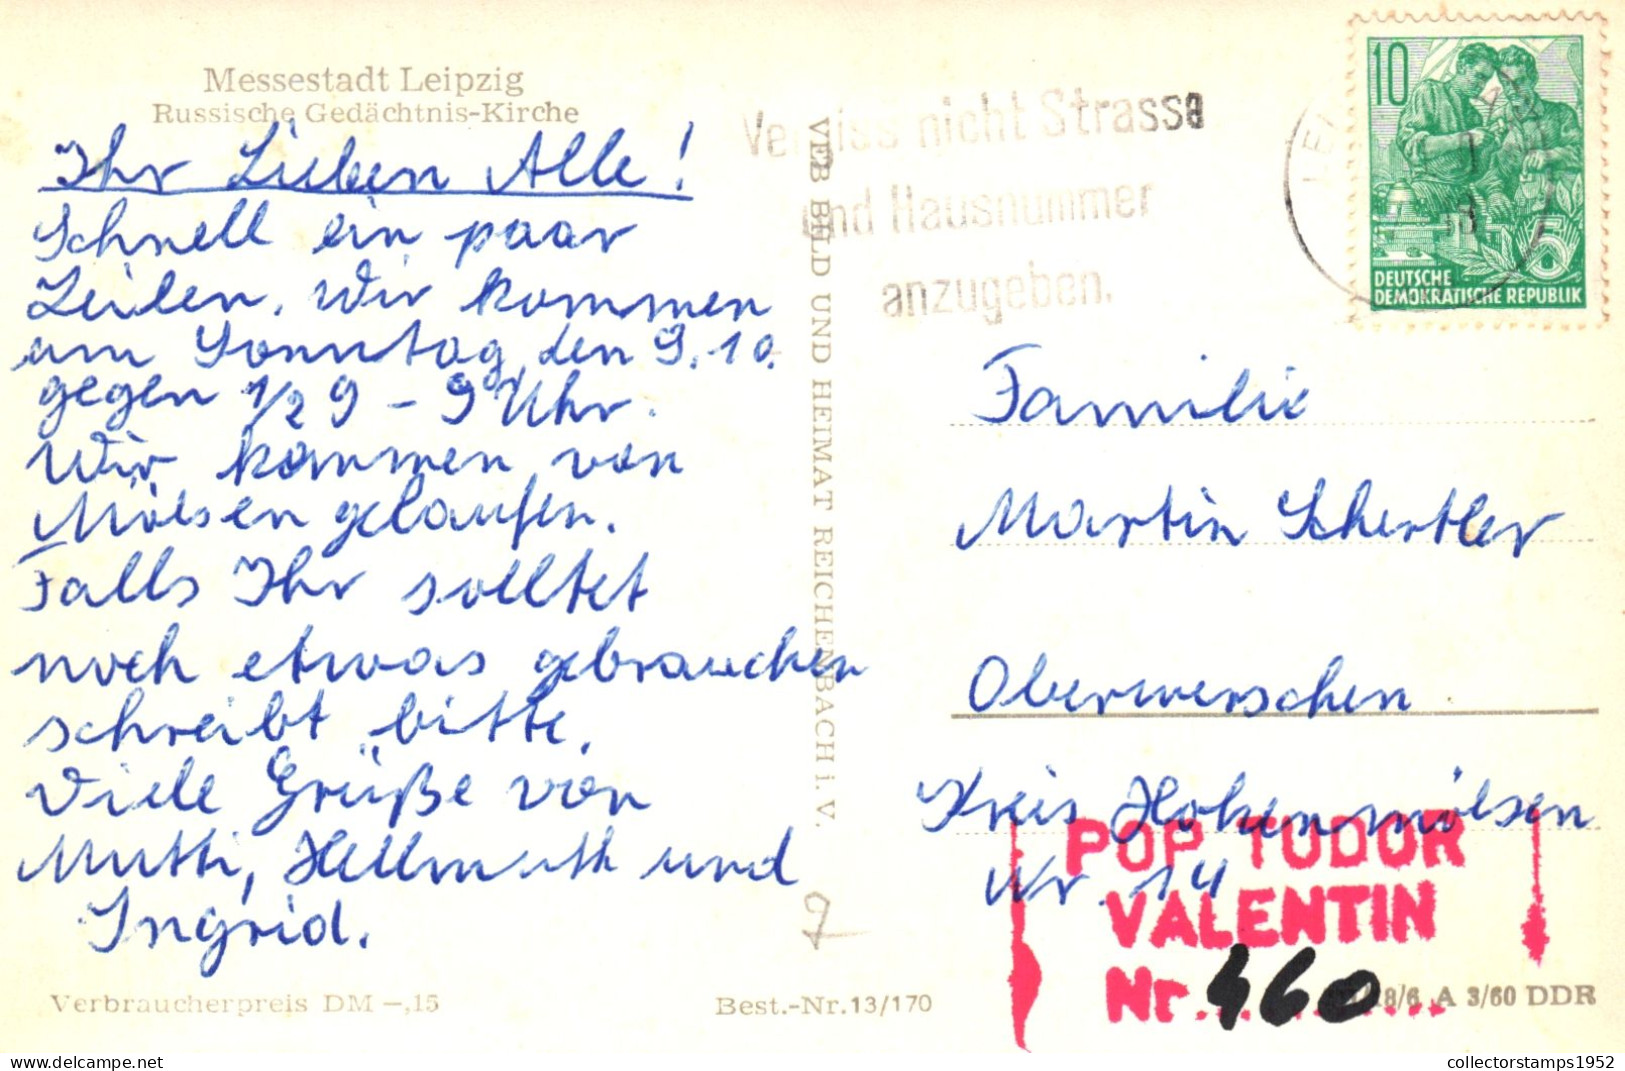 Messestadt Leipzig
Russische Gedächtnis-Kirche
Ihr Lieben Alle!
Schnell ein paar
Zeilen. Wir kommen
am Sonntag, den 9.10.
gegen 1/2 9 - 9 Uhr.
Wir kommen von
Mölsen gelaufen.
Falls Ihr solltet
noch etwas gebrauchen
schreibt bitte.
Viele Grüße von
Mutti, Hellmuth und
Ingrid.
Verbraucherpreis DM -,15
Best.-Nr. 13/170
VEB BILD UND HEIMAT REICHENBACH i. V.
7
Vergiss nicht Strasse
und Hausnummer
anzugeben.
10
5
DEUTSCHE
DEMOKRATISCHE REPUBLIK
Familie
Martin Schertler
Oberwerschen
Kreis Hohenmölsen
Nr. 14
POP TUDOR
VALENTIN
Nr. 460
8/6 A 3/60 DDR
collectorstamps1952